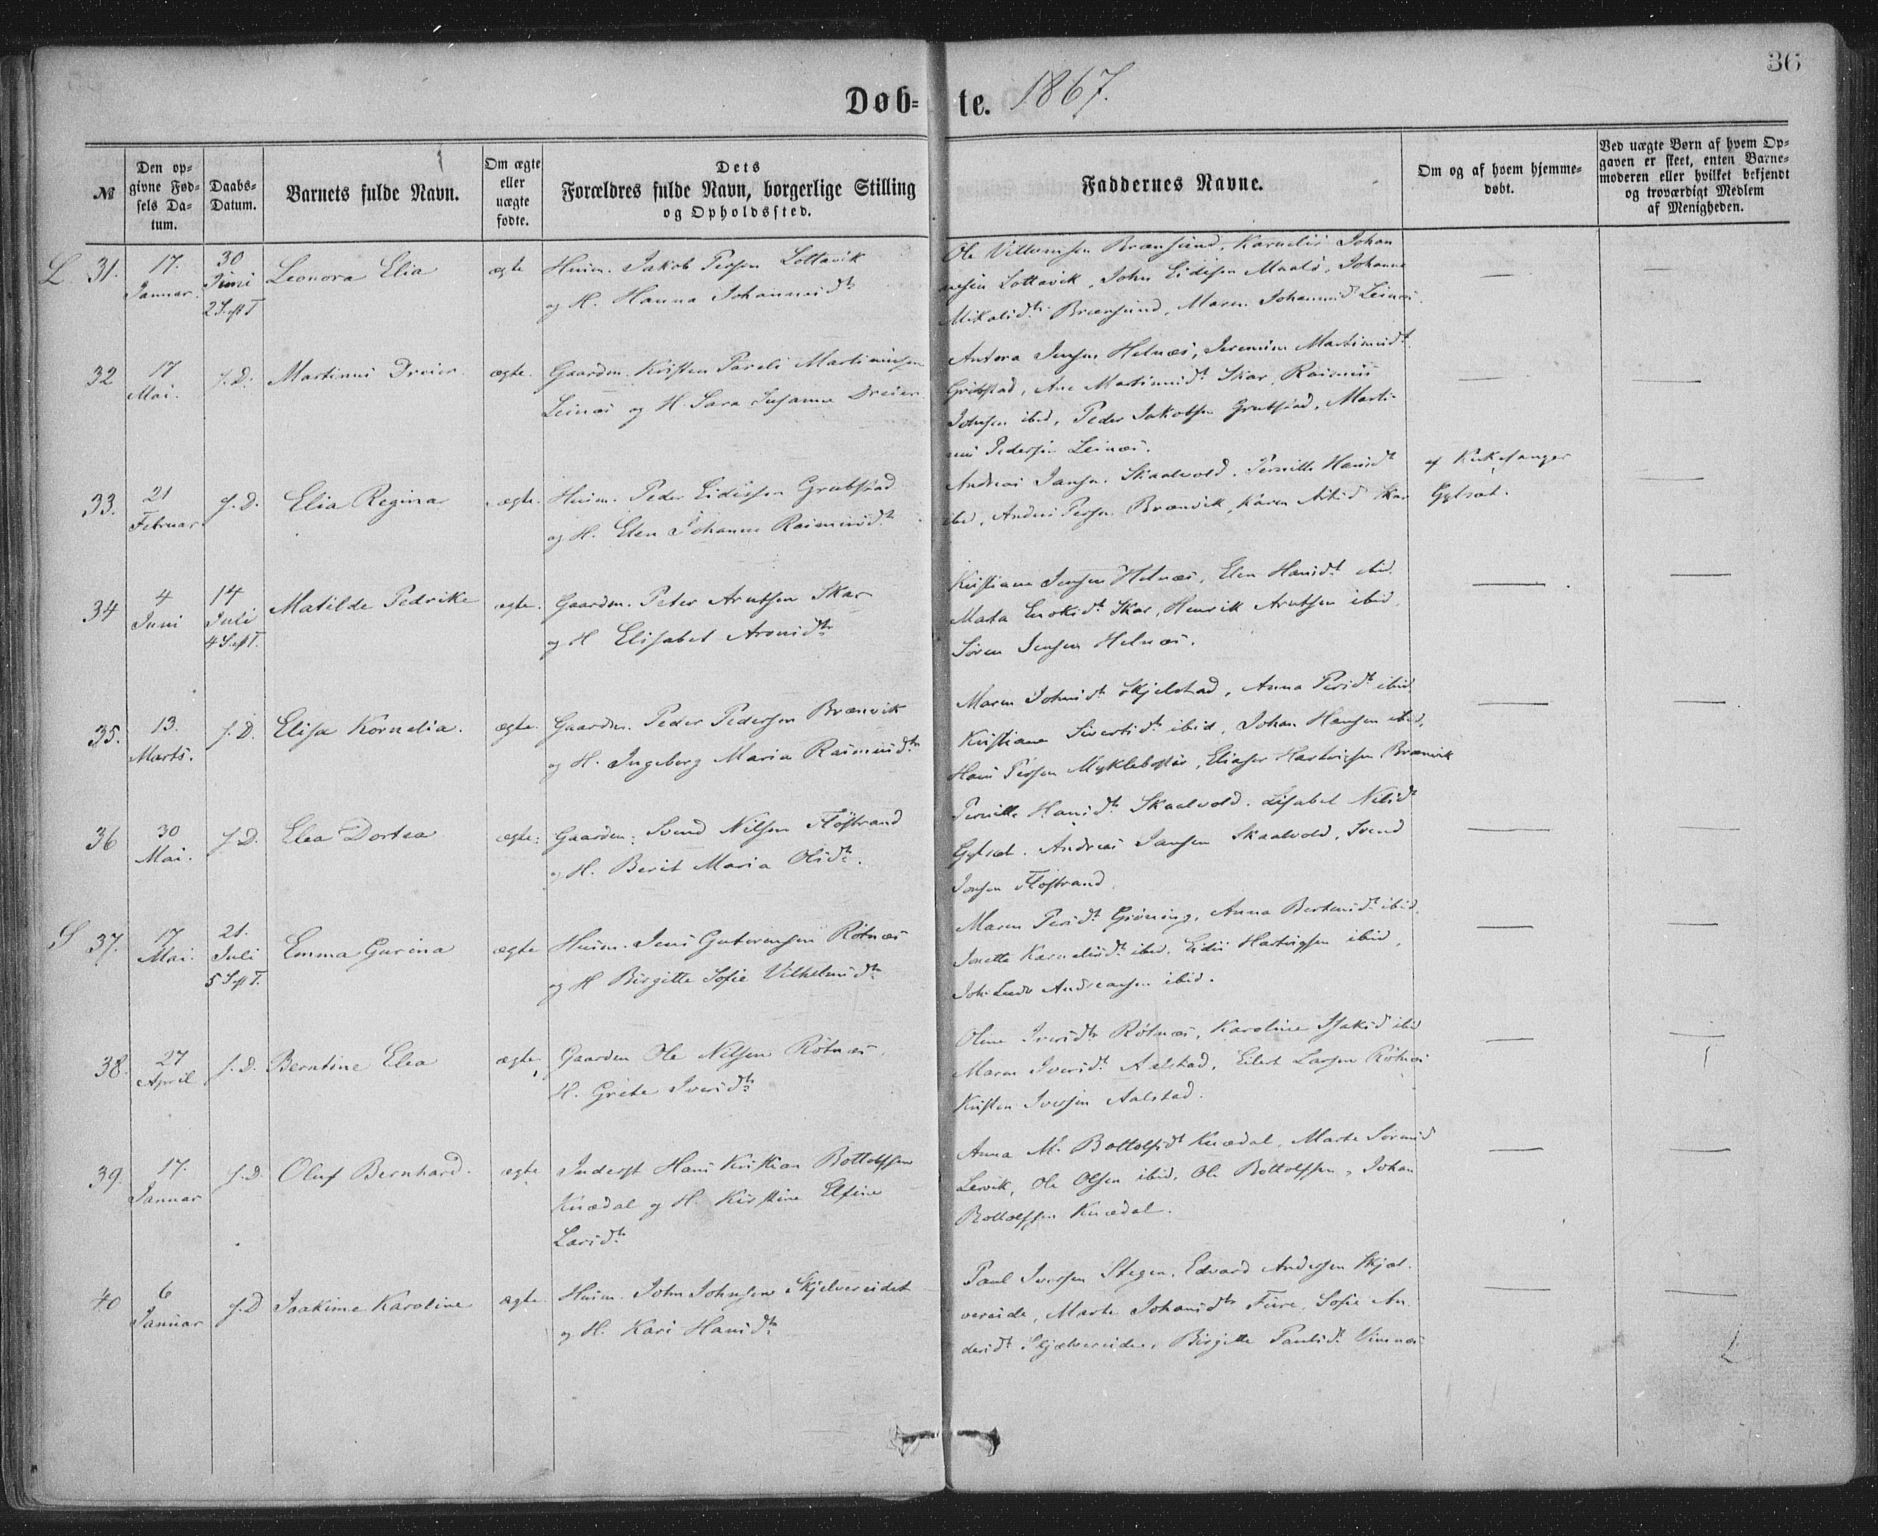 36
Døb-te. 1867.
№
Den opgivne Fødsels Datum.
Daabs-Datum.
Barnets fulde Navn.
Om ægte eller uægte fødte.
Dets Forældres fulde Navn, borgerlige Stilling og Opholdssted.
Faddernes Navne.
Om og af hvem hjemmedøbt.
Ved uægte Børn af hvem Opgaven er skeet, enten Barnemoderen eller hvilket bekjendt og troværdigt Medlem af Menigheden.
L. 31. 17. Januar. 30 Juni 2 S. e. T. Leonora Elia ægte Huusm. Jakob Persen Lottavik
og H. Hanna Johannesdtr
Johannesen Lottavik, John Eidesen
Maren Johannesd Leines.
32 17 Mai. s. D. Martinus Dreier. ægte. Gaardm. Kristen Pareli Martinussen
Leines og H. Sara Susanna Dreier
Antora Jensen Helnæs, Martinusdt
Grubstad, Ane Martinusdt Skar, Rasmus
Johnsen ibid, Peder Jakobsen Grubstad, Marti-
nus Pedersen Leines.
33. 21 Februar s. D. Elia Regina ægte. Huusm. Peder Eidissen Grubstad
og H. Elen Johanna Rasmusdtr
Andreas Jansen Skaalvold. Pernille Hansdt
ibid, Anders Persen Brænvik, Karen Skar
af Kirkesanger
Gylset.
34 4 Juni 14 Juli 4 S. e. T. Matilde Pedrike ægte. Gaardm. Peter Arntsen Skar
og H Elisabet Aronsdtr
Kristiane Jensen Helnæs, Elen Hansdt ibid.
Marta Enoksdt Skar, Henrik Arntsen ibid,
Søren Jensen Helnæs.
35. 13. Marts. s. D. Elise Kornelia. ægte. Gaardm. Peder Pedersen Brænvik
og H. Ingeborg Maria Rasmusdtr
Maren Johnsdt Skjelstad, Anna Persdt ibid
Kristiane Sivertsdt ibid, Johan Hansen ibid,
Hans Persen Myklebostad, Eliaser Hartvigsen Brænvik
36 30 Mai. s. D. Elea Dortea ægte. Gaardm. Svend Nilsen Fløstrand
og H. Berit Maria Olsdtr.
Pernille Hansdt Skaalvold. Lisabet Nilsdt
Gylset. Andreas Jansen Skaalvold, Svend
Jonsen Fløstrand.
S 37. 17 Mai. 21. Juli 5 S. e. T. Emma Gurina ægte Huusm. Jens Gutormsen Røtnæs
og H Birgitte Sofie Vilhelmsdtr
Maren Persdt Grøning, Anna Berntsdt ibid,
Jonette Korneliusdt ibid. Eidis Hartvigsen ibid,
Andreasen ibid.
38. 27 April s. D. Berntine Elea ægte. Gaardm Ole Nilsen Røtnæs.
H. Grete Iversdtr
Oline Iversdtr Røtnæs, Karoline Isaksd ibid
Maren Iversdt Aalstad, Eilert Larsen Røtnæs
Kristen Iversen Aalstad.
39. 17. Januar s. D. Oluf Bernhard. ægte Inderst Hans Kristian Bottolfsen
Knædal og H. Kirstine Elfine
Larsdtr
Anna M. Bottolfsdt Knædal, Marte
Lervik, Ole Olsen ibid, Ole Bottolfsen, Johan
Bottolfsen Knædal.
40 6 Januar s. D Joakime Karoline ægte Huusm. John Johnsen Skjelvereidet
og H. Kari Hansdtr
Paul Iversen Stegen. Edvard Andersen Skjel-
vereide, Marte Johansdtr Fure, Sofie An-
dersdt Skjelvereide, Birgitte Paulsdt Vinnæs